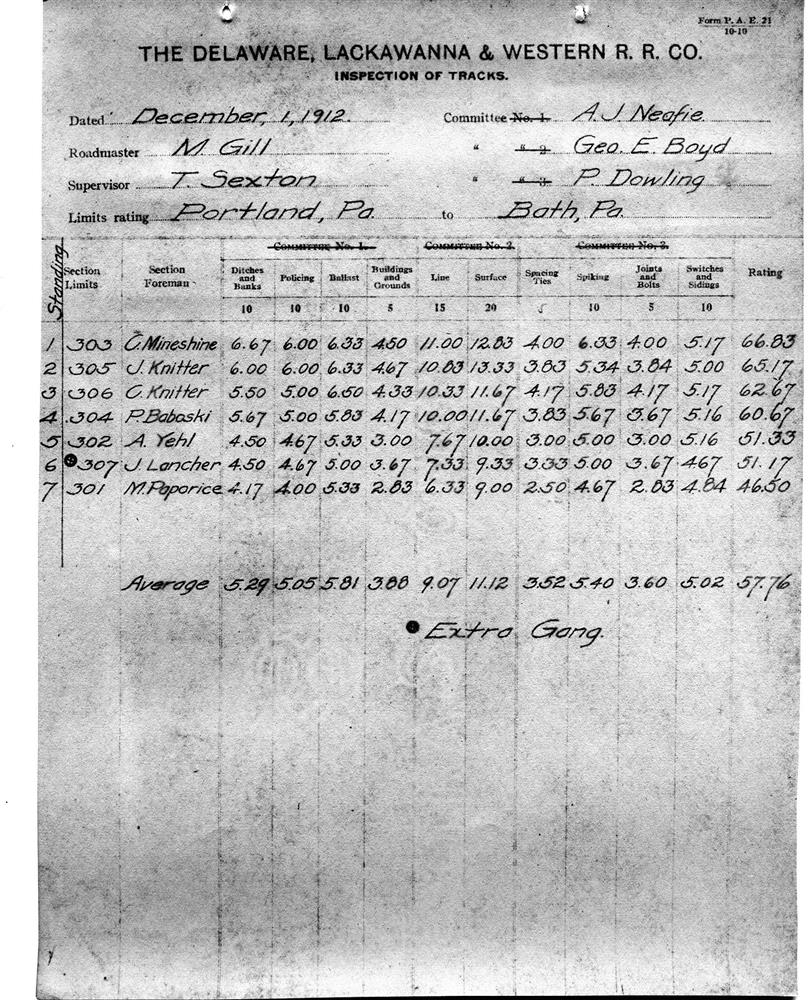 Form P. A. E. 21
10-10
THE DELAWARE, LACKAWANNA & WESTERN R. R. CO.
INSPECTION OF TRACKS.
Dated December, 1, 1912. Committee No. 1 A. J. Neafie.
Roadmaster M. Gill " " 2 Geo. E. Boyd
Supervisor T. Sexton " " 3 P. Dowling
Limits rating Portland, Pa. to Bath, Pa.
Standing Section Limits Section Foreman COMMITTEE No. 1. COMMITTEE No. 2. COMMITTEE No. 3.
Ditches and Banks Policing Ballast Buildings and Grounds Line Surface Spacing Ties Spiking Joints and Bolts Switches and Sidings Rating
10 10 10 5 15 20 5 10 5 10
1 303 C. Mineshine 6.67 6.00 6.33 4.50 11.00 12.83 4.00 6.33 4.00 5.17 66.83
2 305 J. Knitter 6.00 6.00 6.33 4.67 10.83 13.33 3.83 5.34 3.84 5.00 65.17
3 306 C. Knitter 5.50 5.00 6.50 4.33 10.33 11.67 4.17 5.83 4.17 5.17 62.67
4 304 P. Baboski 5.67 5.00 5.83 4.17 10.00 11.67 3.83 5.67 3.67 5.16 60.67
5 302 A. Yehl 4.50 4.67 5.33 3.00 7.67 10.00 3.00 5.00 3.00 5.16 51.33
6 ● 307 J. Lancher 4.50 4.67 5.00 3.67 7.33 9.33 3.33 5.00 3.67 4.67 51.17
7 301 M. Paparice 4.17 4.00 5.33 2.83 6.33 9.00 2.50 4.67 2.83 4.84 46.50
Average 5.29 5.05 5.81 3.88 9.07 11.12 3.52 5.40 3.60 5.02 57.76
● Extra Gang.